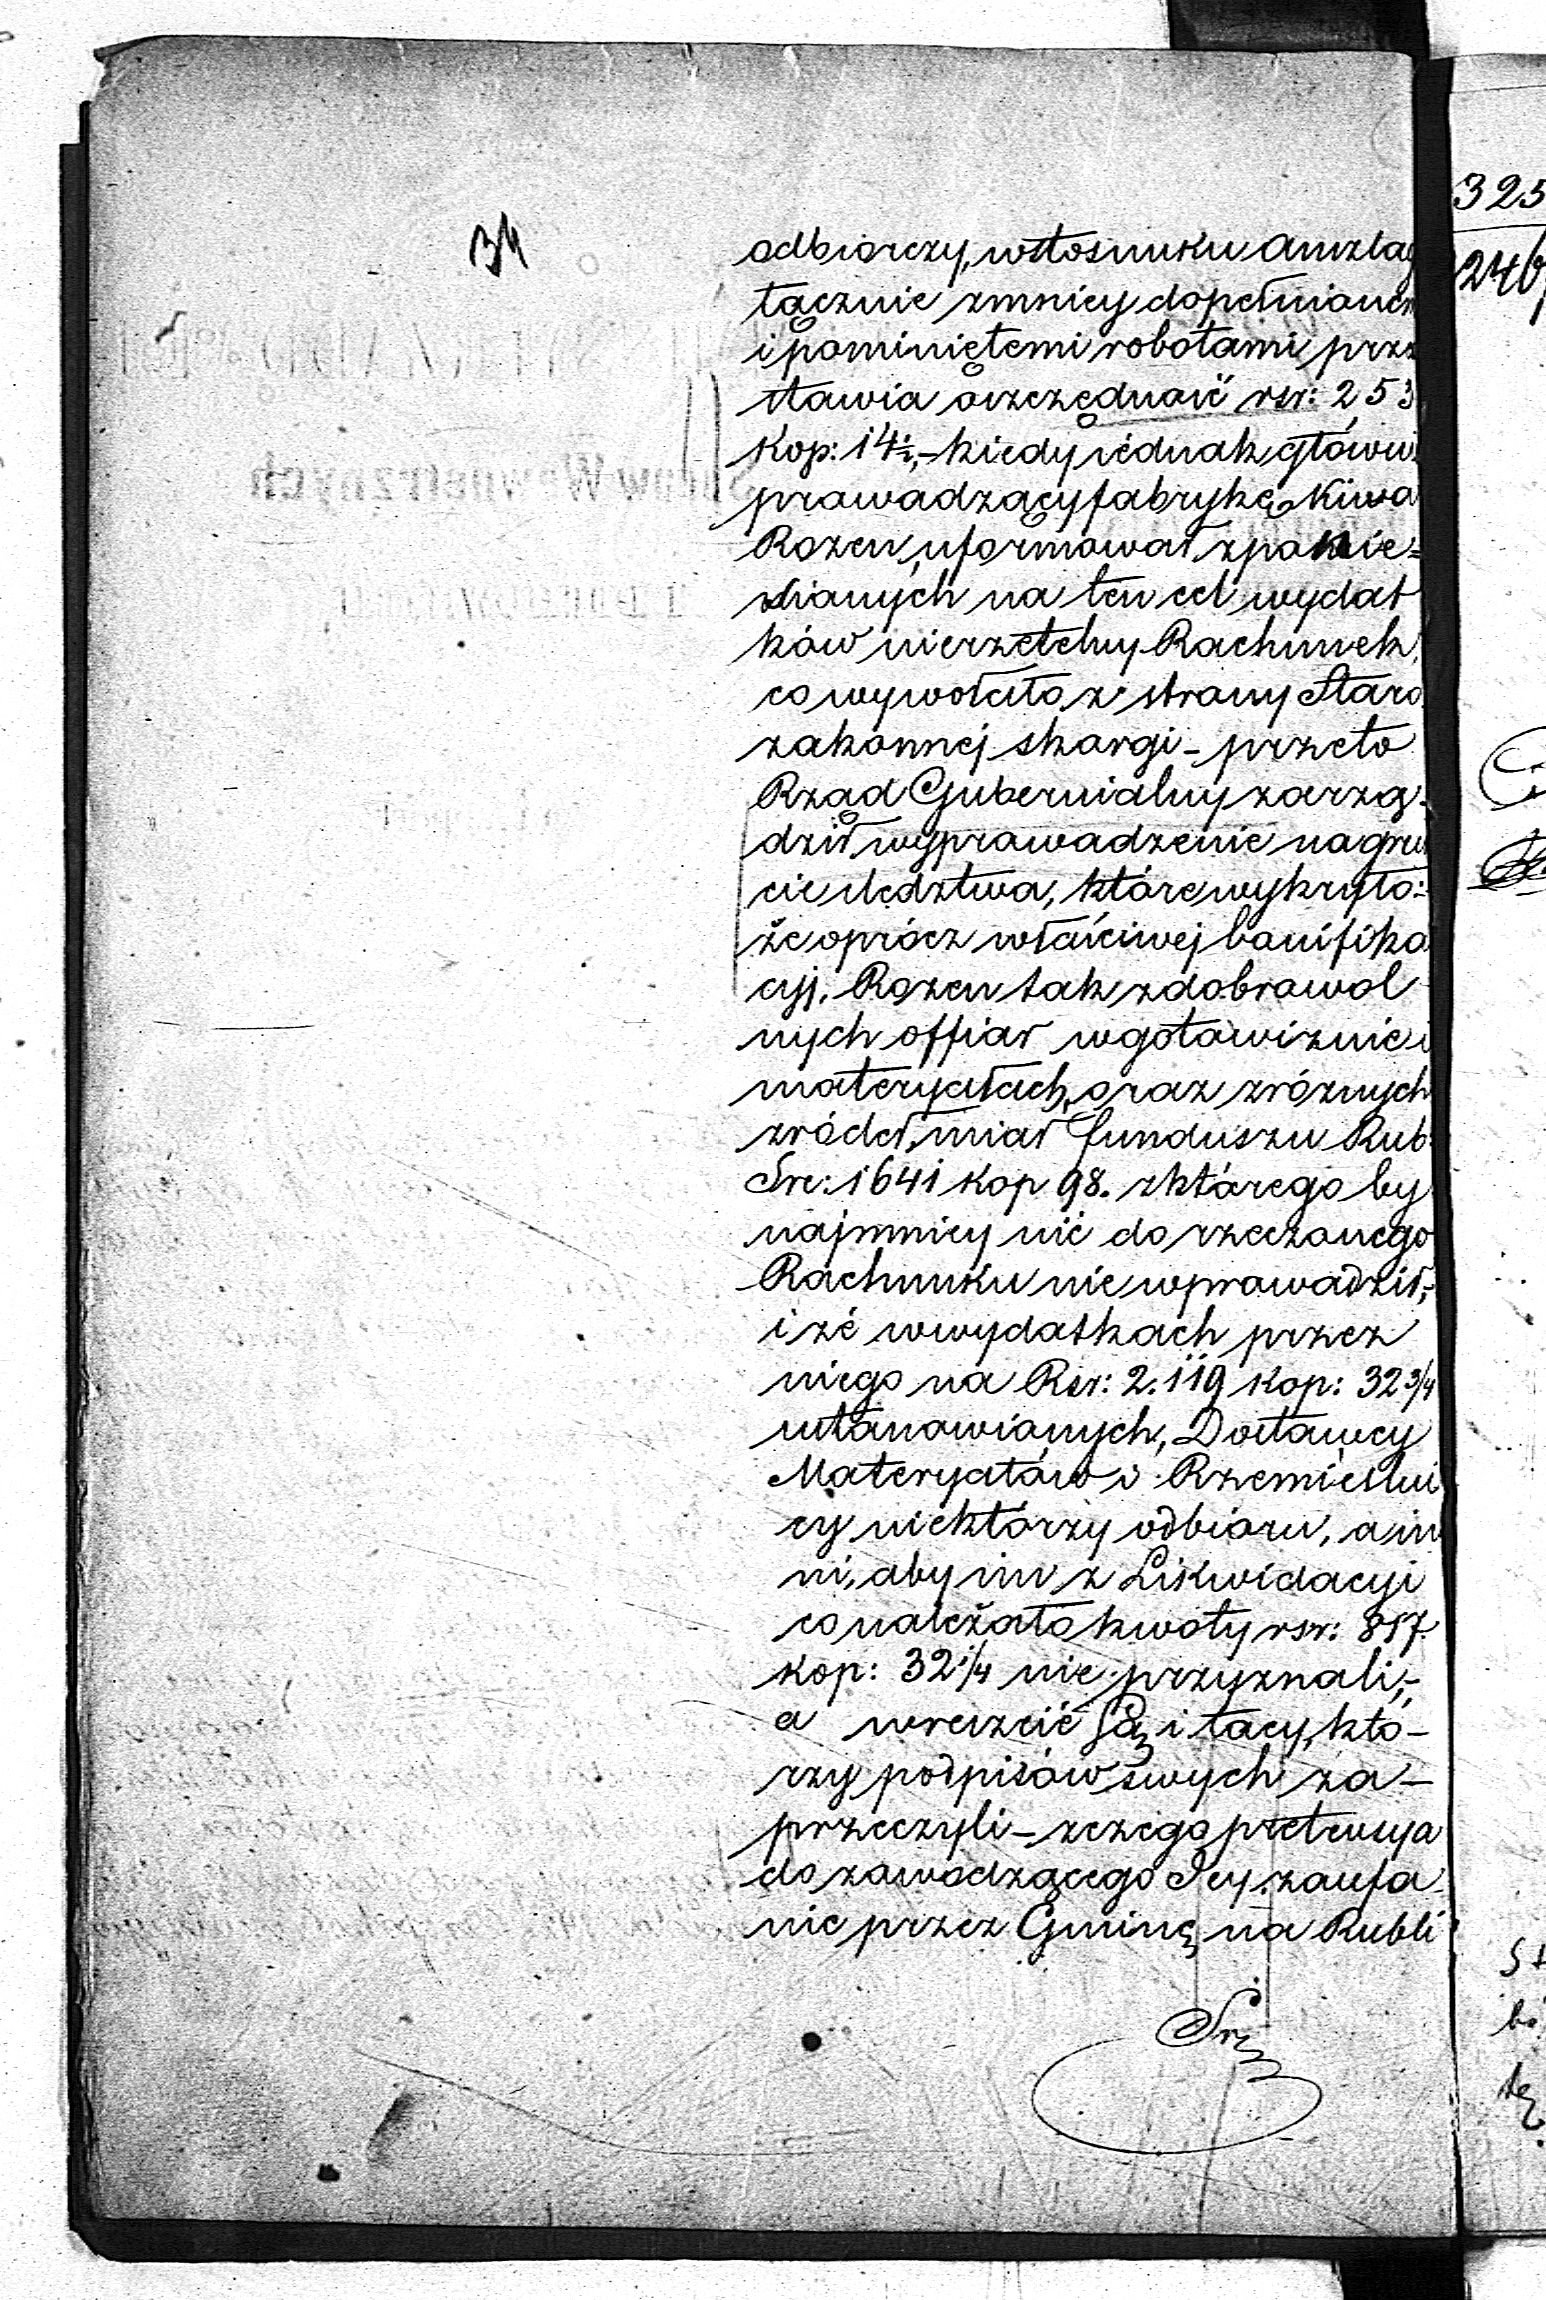 34
odbiorczy, w stosunku Anszlag
łącznie z mniey dopełnionem
i pominiętemi robotami, prze
stawia oszczędność rsr: 253
Kop: 14½,- kiedy jednak główni
prowadzący fabrykę Kiwa
Rozen, uformował z ponie=
sionych na ten cel wydat
ków nierzetelny Rachunek,
co wywołało z strony Staro
zakonnej skargi - przeto
Rząd Gubernialny zarzą-
dził wyprowadzenie na grun
cie śledztwa, które wykryło:
że oprócz właściwej bonifika
cyj, Rozen tak z dobrowol
nych offiar w gotowiznie i
materyałach, oraz z różnych
zródeł, miał funduszu Rub:
Sre: 1641 Kop 98. z którego by
najmniey nic do rzeczonego
Rachunku nie wprowadził,-
i że w wydatkach przez
niego na Rsr: 2.119 Kop: 32 3/4
ustanowionych, Dostawcy
Materyałów i Rzemieślni
cy niektórzy odbioru, a in
ni, aby im z Likwidacyi
co należało kwoty rsr: 857
Kop: 32 1/4 nie przyznali,-
a wreszcie Są i tacy, któ-
rzy podpisów swych za-
przeczyli - z czego pretensya
do zawodzącego Jey zaufa
nie przez Gminę na Rubli
Sr:
325
246